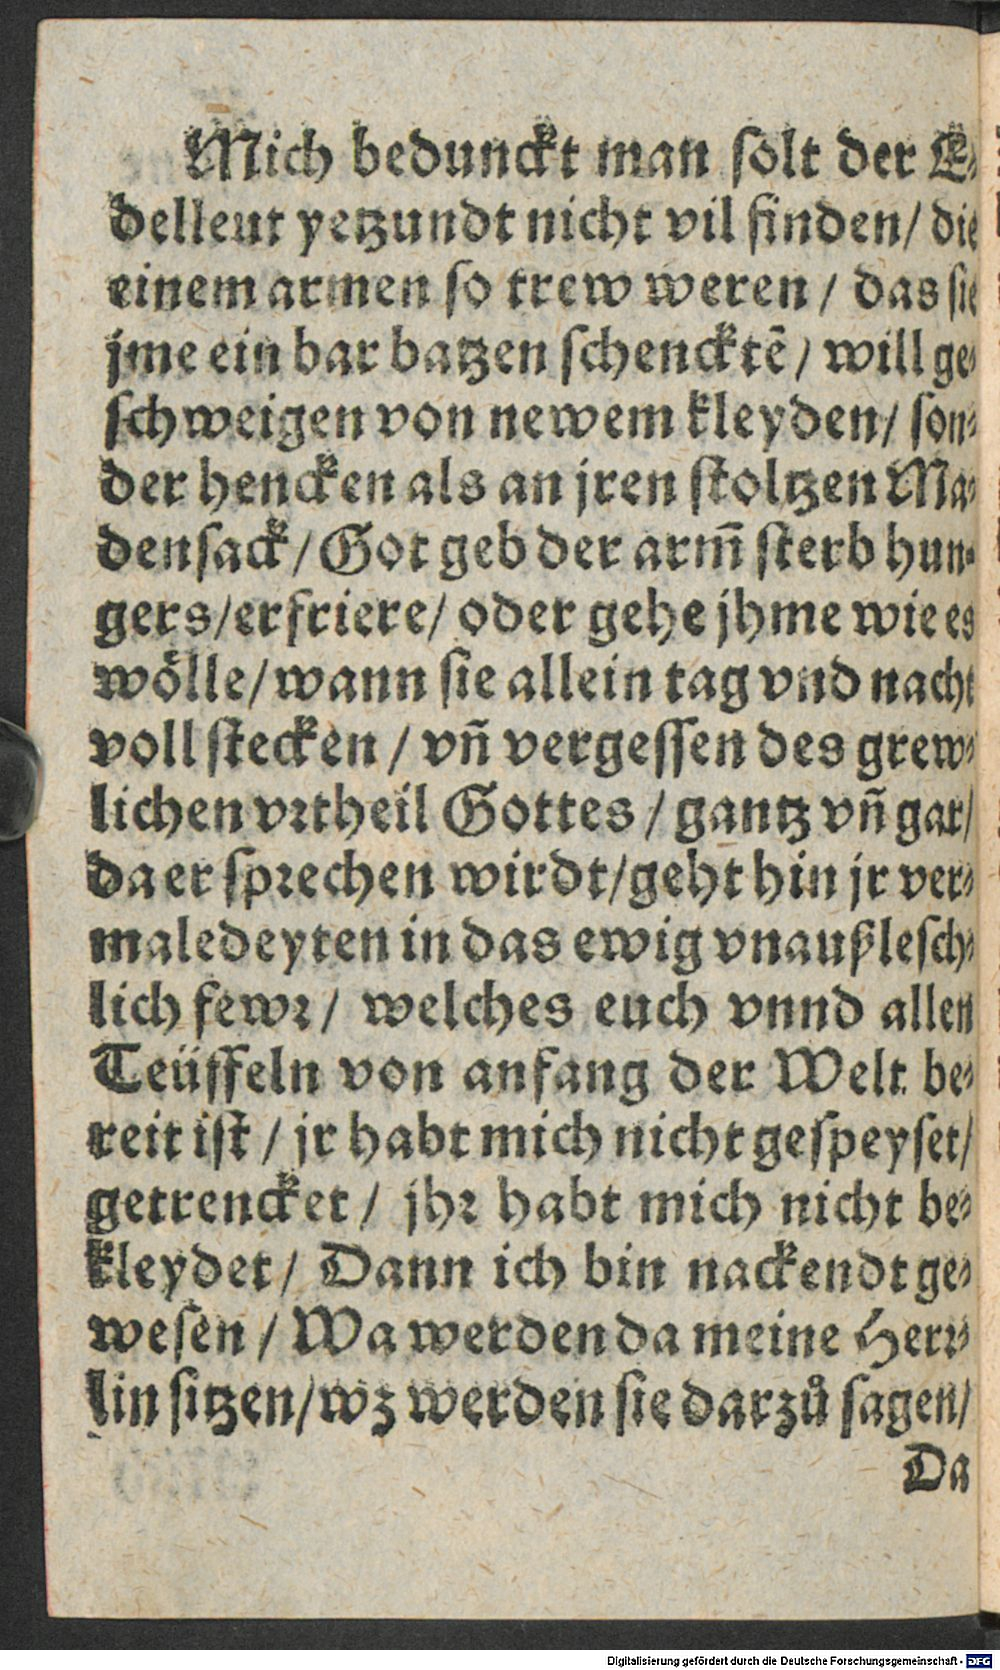 Mich bedunckt man solt der E⸗
delleut yetzundt nicht vil finden/ die
einem armen so trew weren / das sie
jme ein bar batzen schencktẽ / will ge⸗
schweigen von newem kleyden/ son⸗
der hencken als an jren stoltzen Ma⸗
densack / Got geb der arm̃ sterb hun⸗
gers/erfriere/ oder gehe jhme wie es
wölle/wann sie allein tag vnd nacht
voll stecken / vñ vergessen des grew⸗
lichen vrtheil Gottes / gantz vñ gar/
da er sprechen wirdt/geht hin jr ver⸗
maledeyten in das ewig vnaußlesch⸗
lich fewr / welches euch vnnd allen
Teüffeln von anfang der Welt be⸗
reit ist / jr habt mich nicht gespeyset/
getrencket / jhr habt mich nicht be⸗
kleydet / Dann ich bin nackendt ge⸗
wesen / Wa werden da meine Herr⸗
lin sitzen/wz werden sie darzů sagen/
Da
Digitalisierung gefördert durch die Deutsche Forschungsgemeinschaft - DFG